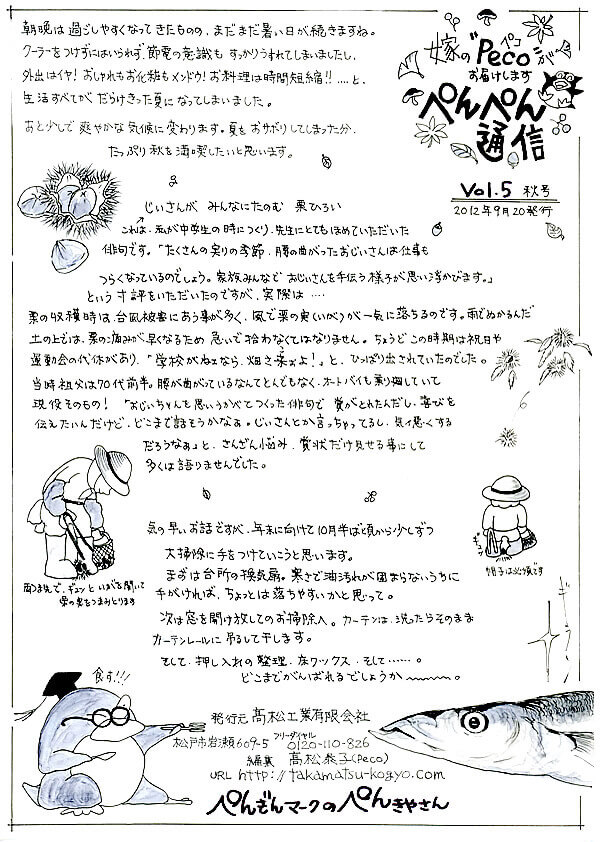 嫁の"Peco"が
ペコ
お届けします
ぺんぺん
通信
Vol.5 秋号
2012年9月20発行
朝晩は過ごしやすくなってきたものの、まだまだ暑い日が続きますね。
クーラーをつけずにはいられず、節電の意識もすっかりうすれてしまいましたし、
外出はイヤ！おしゃれもお化粧もメンドウ！お料理は時間短縮!! ‥‥と、
生活すべてがだらけきった夏になってしまいました。
あと少しで爽やかな気候に変わります。夏をおサボりしてしまった分、
たっぷり秋を満喫したいと思います。
じいさんが みんなにたのむ 栗ひろい
これは、私が中学生の時につくり、先生にとてもほめていただいた
俳句です。「たくさんの実りの季節、腰の曲がったおじいさんは仕事も
つらくなっているのでしょう。家族みんなでおじいさんを手伝う様子が思い浮かびます。」
という寸評をいただいたのですが、実際は‥‥
栗の収穫時は、台風被害にあう事が多く、風で栗の実(いが)が一気に落ちるのです。雨でぬかるんだ
土の上では、栗の痛みが早くなるため急いで拾わなくてはなりません。ちょうどこの時期は祝日や
運動会の代休があり、「学校がねェなら、畑さ来ぉよ！」と、ひっぱり出されていたのでした。
当時祖父は70代前半。腰が曲がっているなんてとんでもなく、オートバイも乗り廻していて
現役そのもの！「おじいちゃんを思いうかべてつくった俳句で 賞がとれたんだし、喜びを
伝えたいんだけど、どこまで話そうかなぁ。じいさんとか言っちゃってるし、気ィ悪くする
だろうなぁ」と、さんざん悩み、賞状だけ見せる事にして
多くは語りませんでした。
両つま先で、ギュッといがを開いて
栗の実をつまみとります
ギュッ
帽子は必須です
気の早いお話ですが、年末に向けて10月半ば頃から少しずつ
大掃除に手をつけていこうと思います。
まずは台所の換気扇。寒さで油汚れが固まらないうちに
手がければ、ちょっとは落ちやすいかと思って。
次は窓を開け放してのお掃除へ。カーテンは、洗ったらそのまま
カーテンレールに吊るして干します。
そして、押し入れの整理、床ワックス、そして‥‥‥。
どこまでがんばれるでしょうか〜〜〜。
食す!!!
発行元 髙松工業有限会社
松戸市岩瀬609-5 フリーダイヤル 0120-110-826
編集 髙松恭子(Peco)
URL http://takamatsu-kogyo.com
ぺんぎんマークのぺんきやさん